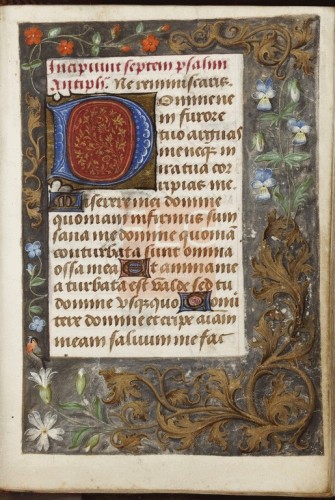 Incipiunt septem psalmi
Antiph. Ne reminiscaris.
Domine ne
in furore
tuo arguas
me neqz in
ira tua cor
ripias me.
Miserere mei domine
quoniam infirmus sum
sana me domine quoniam
conturbata sunt omnia
ossa mea Et anima me
a turbata est valde sed tu
domine vsqzquo Conuer
tere domine et eripe aiam
meam saluum me fac